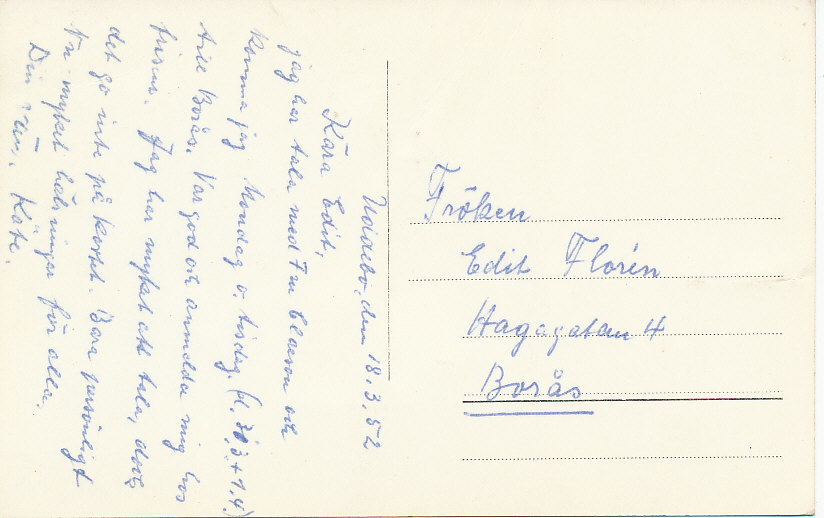 Uddebo, den 18.3.52
Kära Edit,
jag har tala med Fru Claeson och
komma jag Mondag o. tisdag. (d. 31.3 + 1.4.)
till Borås. Var god och anmälda mig hos
frisur. Jag har mycket att tala, dock
det go inte på kortet. Bara personligt
Nu mycket hälsningar för alla.
Din Käte.
Fröken
Edit Florén
Hagagatan 4
Borås